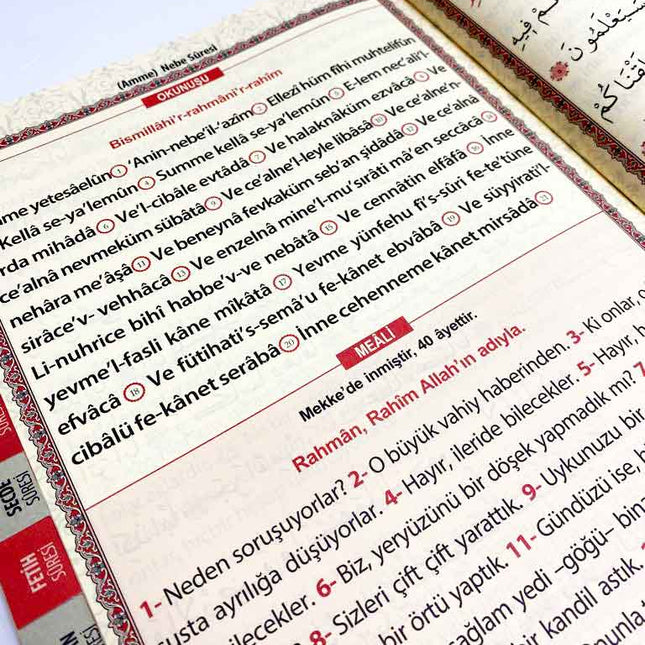 (Amme) Nebe Sûresi
OKUNUŞU
Bismillâhi'r-rahmâni'r-rahim
yetesâelûn 1 'Anin-nebe'il-'azîm 2 Ellezî hüm fîhi muhtelifûn
Kellâ se-ya'lemûn 4 Summe kellâ se-ya'lemûn 5 E-lem nec'ali'l-
mihâdâ 6 Ve'l-cibâle evtâdâ 7 Ve halaknâküm ezvâcâ 8 Ve
ce'alnâ nevmeküm sübâtâ 9 Ve ce'alne'l-leyle libâsâ 10 Ve ce'alne'n-
nehâra me'âşâ 11 Ve beneynâ fevkaküm seb'an şidâdâ 12 Ve ce'alnâ
sirâce'v- vehhâcâ 13 Ve enzelnâ mine'l-mu'sırâti mâ'en seccâcâ 14
Li-nuhrice bihî habbe'v-ve nebâtâ 15 Ve cennâtin elfâfâ 16 İnne
yevme'l-fasli kâne mîkâtâ 17 Yevme yünfehu fi's-sûri fe-te'tûne
efvâcâ 18 Ve fütihati's-semâ'u fe-kânet ebvâbâ 19 Ve süyyirati'l-
cibâlü fe-kânet serâbâ 20 İnne cehenneme kânet mirsâdâ 21
MEÂLİ
Mekke'de inmiştir, 40 âyettir.
Rahmân, Rahîm Allah'ın adıyla.
1- Neden soruşuyorlar? 2- O büyük vahiy haberinden. 3- Ki onlar,
ayrılığa düşüyorlar. 4- Hayır, ileride bilecekler. 5- Hayır,
bilecekler. 6- Biz, yeryüzünü bir döşek yapmadık mı? 7
8- Sizleri çift çift yarattık. 9- Uykunuzu bir
bir örtü yaptık. 11- Gündüzü ise,
sağlam yedi –göğü– bina
bir kandil astık.
SECDE
SÛRESİ
FETİH
SÛRESİ